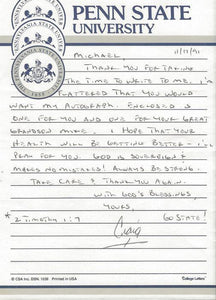 PENN STATE
UNIVERSITY
MICHAEL,
THANK YOU FOR TAKING
THE TIME TO WRITE TO ME. I'M
FLATTERED THAT YOU WOULD
WANT MY AUTOGRAPH. ENCLOSED IS
ONE FOR YOU AND ONE FOR YOUR GREAT
GRANDSON MIKE. I HOPE THAT YOUR
HEALTH WILL BE GETTING BETTER - I'LL
PRAY FOR YOU. GOD IS SOVEREIGN &
MAKES NO MISTAKES! ALWAYS BE STRONG.
TAKE CARE & THANK YOU AGAIN.
WITH GOD'S BLESSINGS,
YOURS,
GO STATE!
Craig
* 2 TIMOTHY 1:7
© CSA Inc. Printed in USA
College Letters